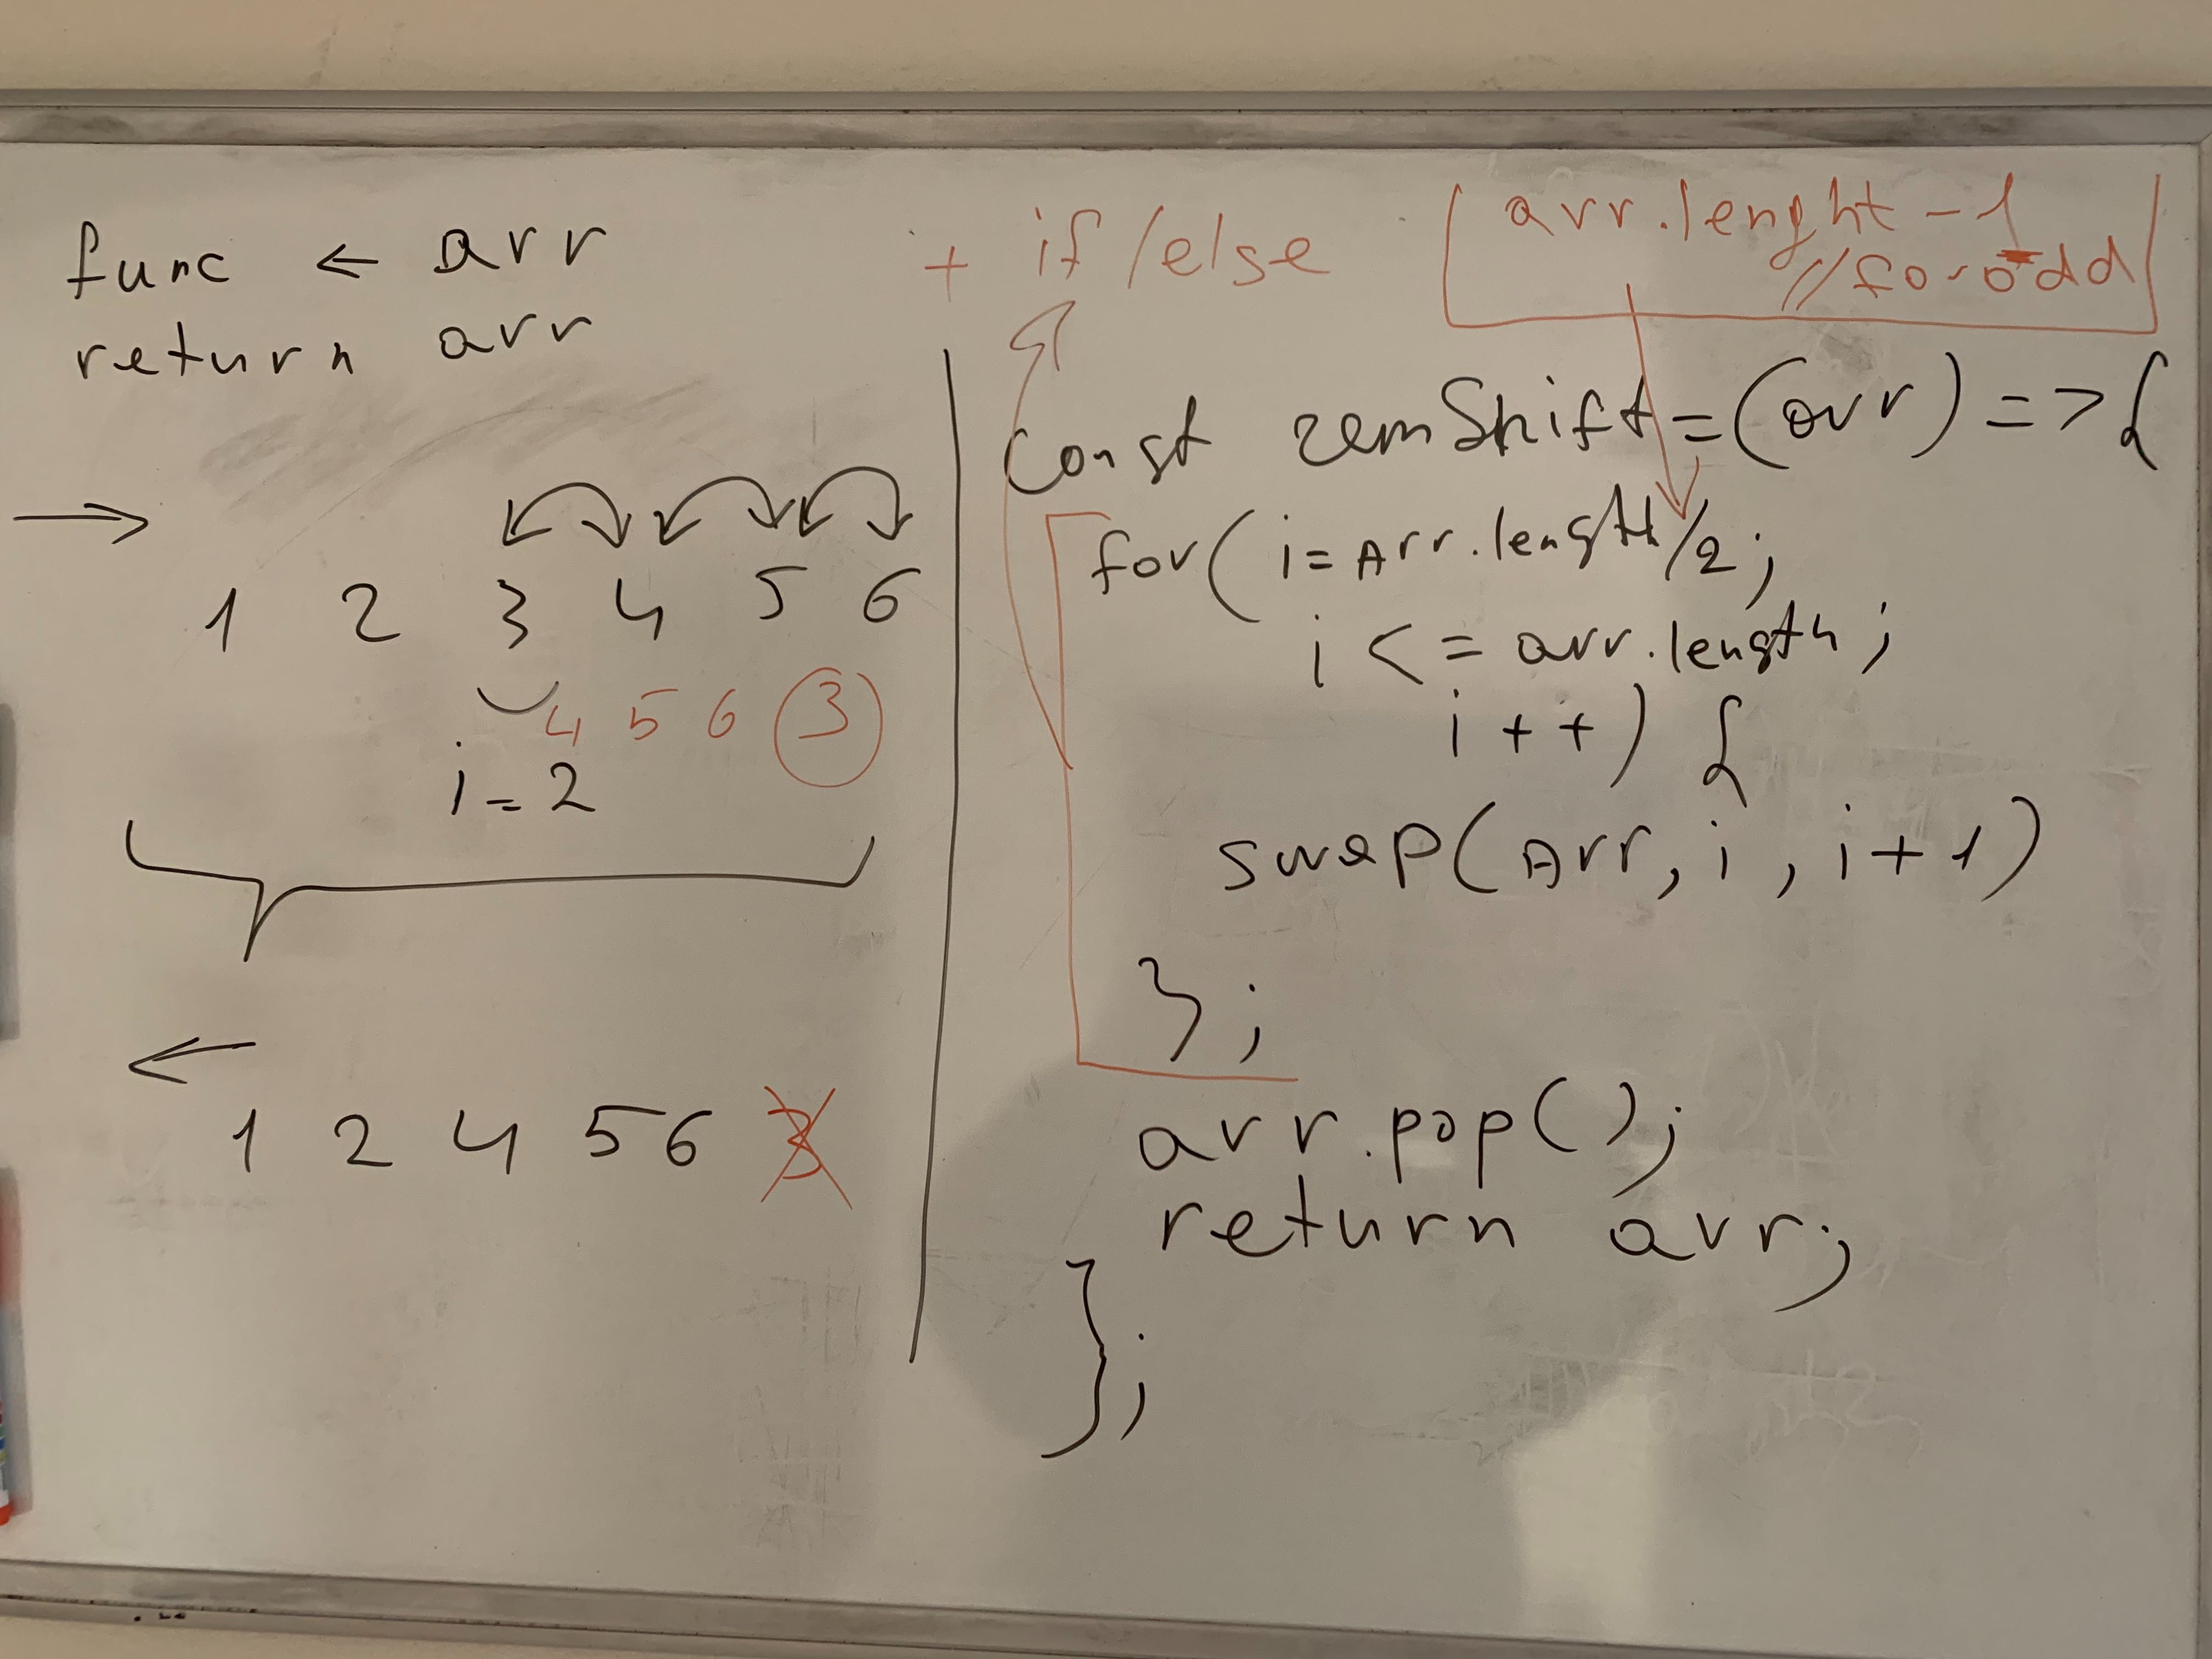 func ← arr
return arr
→
1 2 3 4 5 6
4 5 6 3
i = 2
←
1 2 4 5 6 3
+ if/else
arr.lenght - 1
// for odd
const remShift = (arr) => {
for( i = Arr.length/2;
i <= arr.length;
i++) {
swap(Arr, i, i+1)
};
arr.pop();
return arr;
};